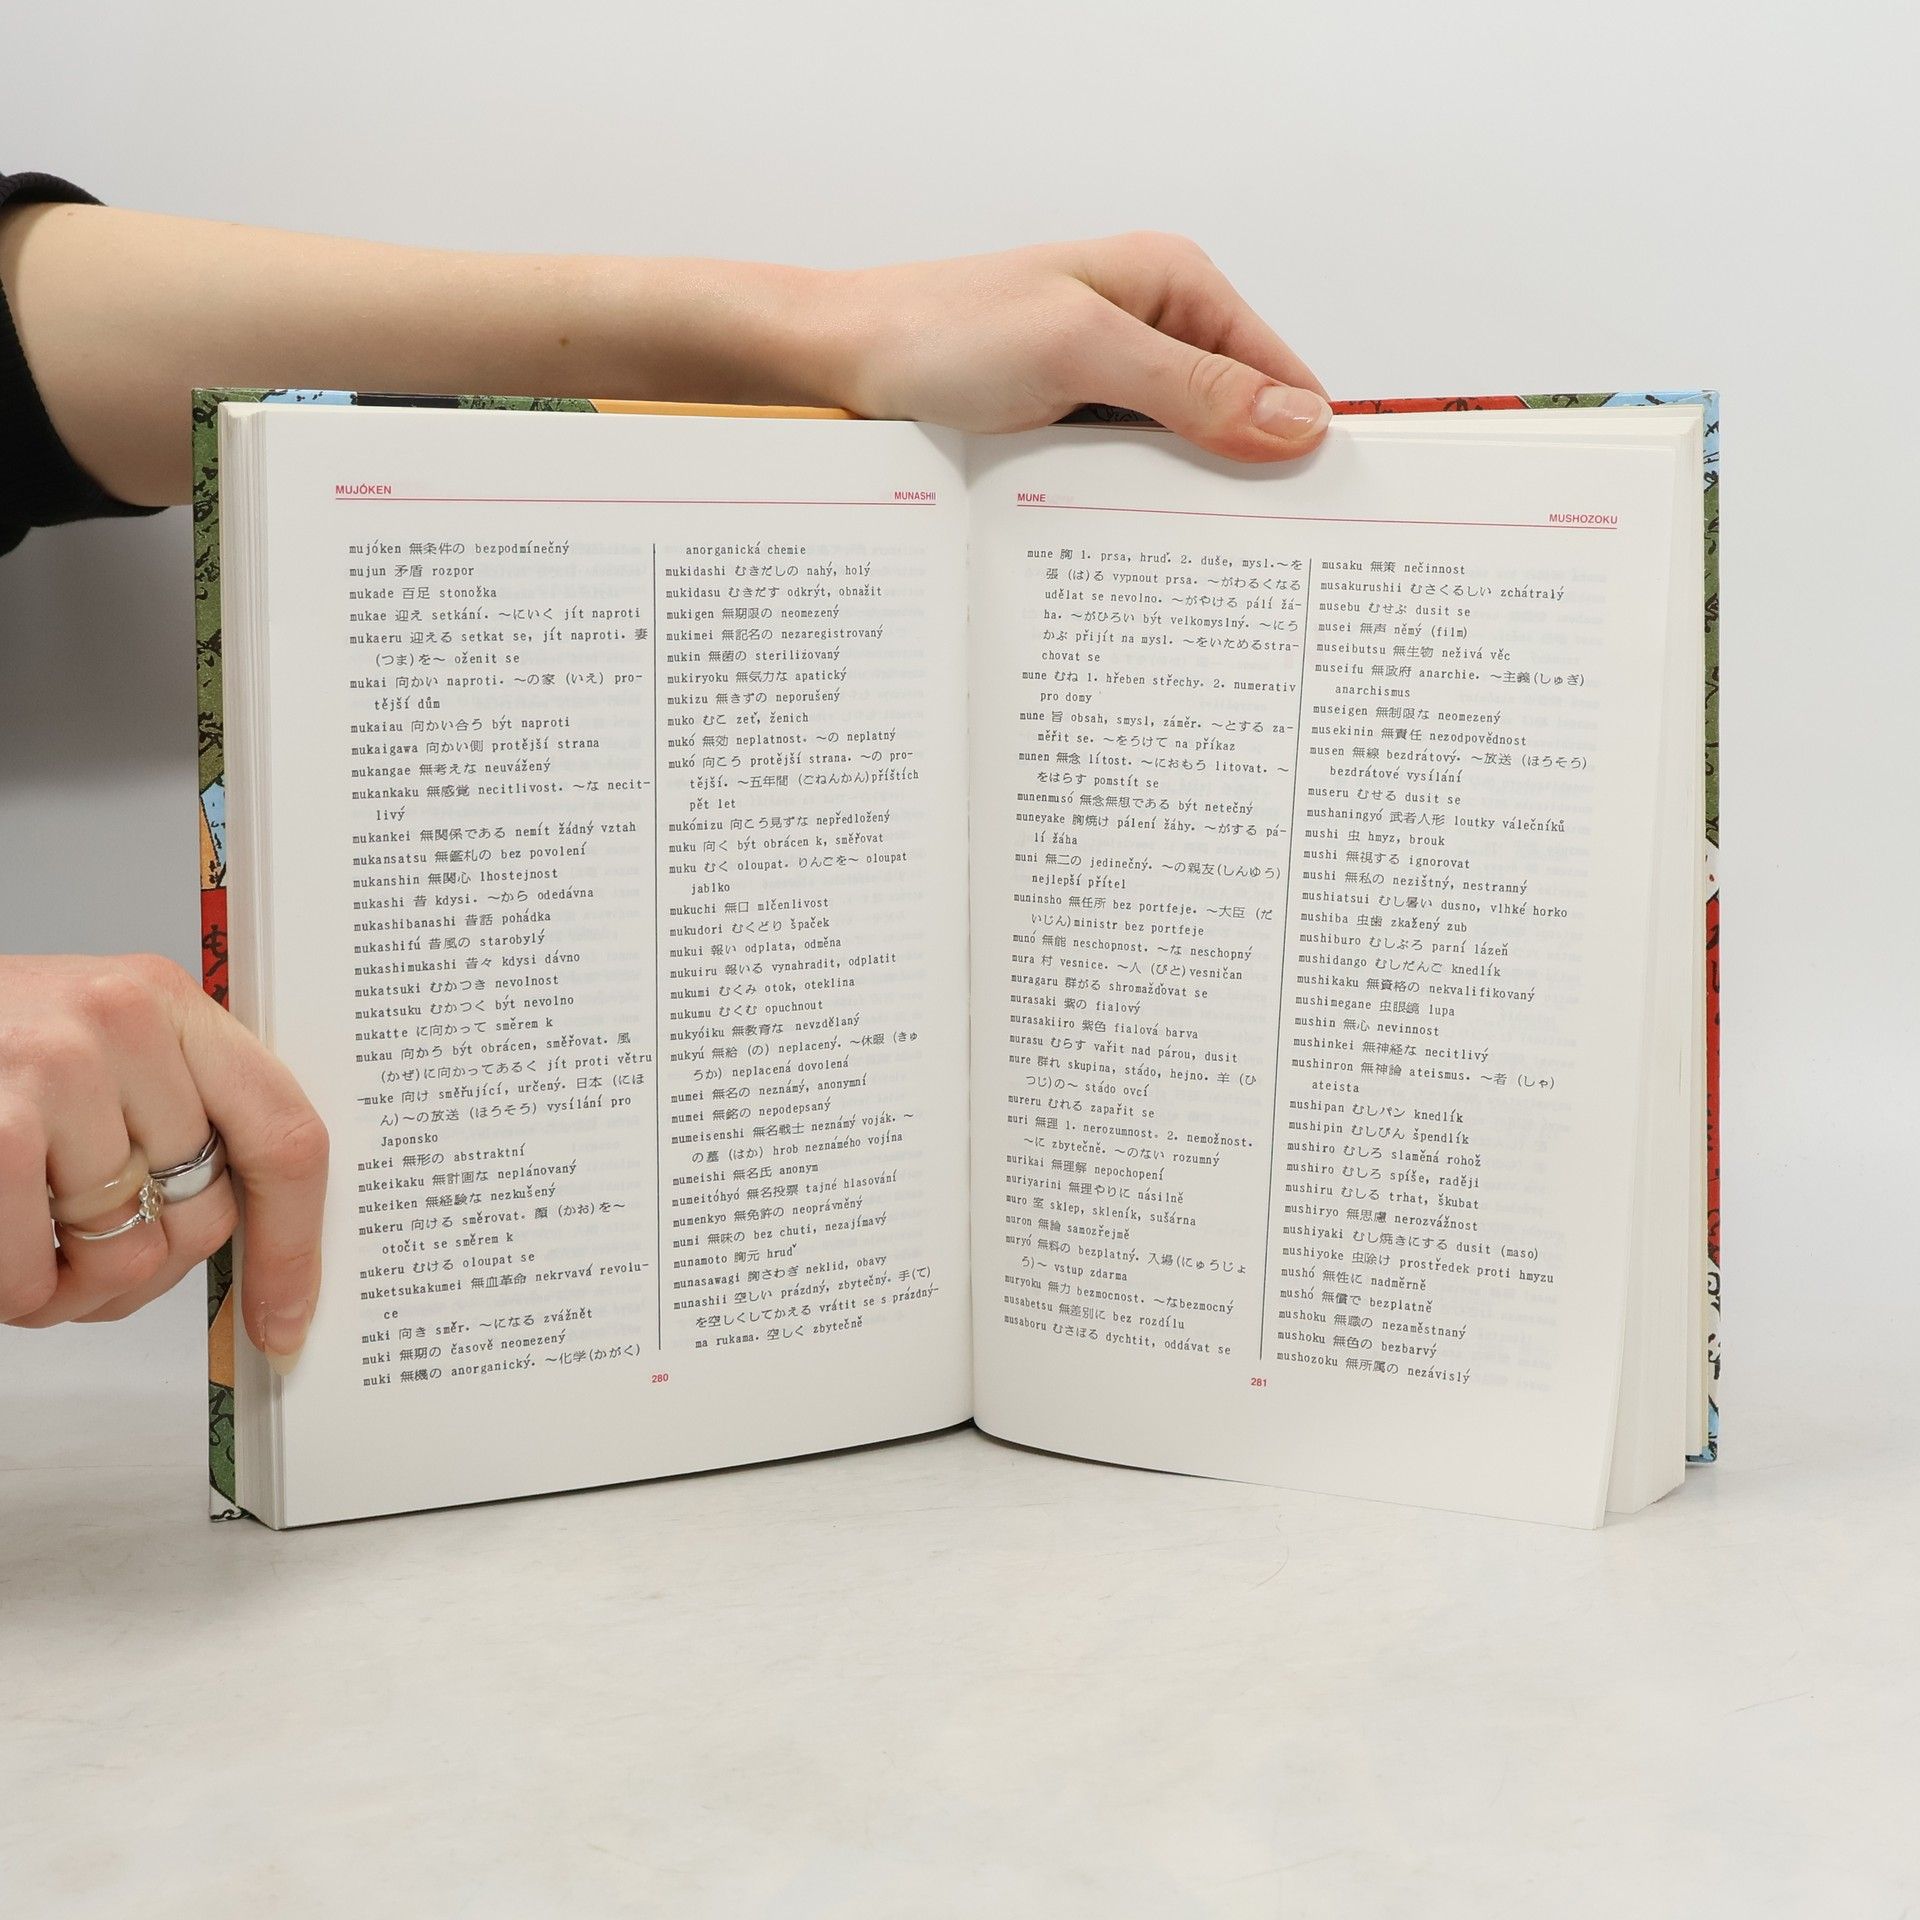 MUJÓKEN
MUNASHII
mujóken 無条件の bezpodmínečný
mujun 矛盾 rozpor
mukade 百足 stonožka
mukae 迎え setkání. 〜にいく jít naproti
mukaeru 迎える setkat se, jít naproti. 妻
(つま)を〜 oženit se
mukai 向かい naproti. 〜の家 (いえ) pro-
tější dům
mukaiau 向かい合う být naproti
mukaigawa 向かい側 protější strana
mukangae 無考えな neuvážený
mukankaku 無感覚 necitlivost. 〜な necit-
livý
mukankei 無関係である nemít žádný vztah
mukansatsu 無鑑札の bez povolení
mukanshin 無関心 lhostejnost
mukashi 昔 kdysi. 〜から odedávna
mukashibanashi 昔話 pohádka
mukashifú 昔風の starobylý
mukashimukashi 昔々 kdysi dávno
mukatsuki むかつき nevolnost
mukatsuku むかつく být nevolno
mukatte に向かって směrem k
mukau 向かう být obrácen, směřovat. 風
(かぜ)に向かってあるく jít proti větru
-muke 向け směřující, určený. 日本 (にほ
ん)〜の放送 (ほうそう) vysílání pro
Japonsko
mukei 無形の abstraktní
mukeikaku 無計画な neplánovaný
mukeiken 無経験な nezkušený
mukeru 向ける směrovat. 顔 (かお)を〜
otočit se směrem k
mukeru むける oloupat se
muketsukakumei 無血革命 nekrvavá revolu-
ce
muki 向き směr. 〜になる zvážnět
muki 無期の časově neomezený
muki 無機の anorganický. 〜化学(かがく)
anorganická chemie
mukidashi むきだしの nahý, holý
mukidasu むきだす odkrýt, obnažit
mukigen 無期限の neomezený
mukimei 無記名の nezaregistrovaný
mukin 無菌の sterilizovaný
mukiryoku 無気力な apatický
mukizu 無きずの neporušený
muko むこ zeť, ženich
mukó 無効 neplatnost. 〜の neplatný
mukó 向こう protější strana. 〜の pro-
tější. 〜五年間 (ごねんかん)příštích
pět let
mukómizu 向こう見ずな nepředložený
muku 向く být obrácen k, směřovat
muku むく oloupat. りんごを〜 oloupat
jablko
mukuchi 無口 mlčenlivost
mukudori むくどり špaček
mukui 報い odplata, odměna
mukuiru 報いる vynahradit, odplatit
mukumi むくみ otok, oteklina
mukumu むくむ opuchnout
mukyóiku 無教育な nevzdělaný
mukyú 無給 (の) neplacený. 〜休暇 (きゅ
うか) neplacená dovolená
mumei 無名の neznámý, anonymní
mumei 無銘の nepodepsaný
mumeisenshi 無名戦士 neznámý voják. 〜
の墓 (はか) hrob neznámého vojína
mumeishi 無名氏 anonym
mumeitóhyó 無名投票 tajné hlasování
mumenkyo 無免許の neoprávněný
mumi 無味の bez chuti, nezajímavý
munamoto 胸元 hruď
munasawagi 胸さわぎ neklid, obavy
munashii 空しい prázdný, zbytečný. 手(て)
を空しくしてかえる vrátit se s prázdný-
ma rukama. 空しく zbytečně
280
MUNE
MUSHOZOKU
mune 胸 1. prsa, hruď. 2. duše, mysl.〜を
張 (は)る vypnout prsa. 〜がわるくなる
udělat se nevolno. 〜がやける pálí žá-
ha. 〜がひろい být velkomyslný. 〜にう
かぶ přijít na mysl. 〜をいためるstra-
chovat se
mune むね 1. hřeben střechy. 2. numerativ
pro domy
mune 旨 obsah, smysl, záměr. 〜とする za-
měřit se. 〜をうけて na příkaz
munen 無念 lítost. 〜におもう litovat. 〜
をはらす pomstít se
munenmusó 無念無想である být netečný
muneyake 胸焼け pálení žáhy. 〜がする pá-
lí žáha
muni 無二の jedinečný. 〜の親友(しんゆう)
nejlepší přítel
muninsho 無任所 bez portfeje. 〜大臣 (だ
いじん)ministr bez portfeje
munó 無能 neschopnost. 〜な neschopný
mura 村 vesnice. 〜人 (びと)vesničan
muragaru 群がる shromažďovat se
murasaki 紫の fialový
murasakiiro 紫色 fialová barva
murasu むらす vařit nad párou, dusit
mure 群れ skupina, stádo, hejno. 羊 (ひ
つじ)の〜 stádo ovcí
mureru むれる zapařit se
muri 無理 1. nerozumnost. 2. nemožnost.
〜に zbytečně. 〜のない rozumný
murikai 無理解 nepochopení
muriyarini 無理やりに násilně
muro 室 sklep, skleník, sušárna
muron 無論 samozřejmě
muryó 無料の bezplatný. 入場(にゅうじょ
う)〜 vstup zdarma
muryoku 無力 bezmocnost. 〜なbezmocný
musabetsu 無差別に bez rozdílu
musaboru むさぼる dychtit, oddávat se
musaku 無策 nečinnost
musakurushii むさくるしい zchátralý
musebu むせぶ dusit se
musei 無声 němý (film)
museibutsu 無生物 neživá věc
museifu 無政府 anarchie. 〜主義(しゅぎ)
anarchismus
museigen 無制限な neomezený
musekinin 無責任 nezodpovědnost
musen 無線 bezdrátový. 〜放送 (ほうそう)
bezdrátové vysílání
museru むせる dusit se
mushaningyó 武者人形 loutky válečníků
mushi 虫 hmyz, brouk
mushi 無視する ignorovat
mushi 無私の nezištný, nestranný
mushiatsui むし暑い dusno, vlhké horko
mushiba 虫歯 zkažený zub
mushiburo むしぶろ parní lázeň
mushidango むしだんご knedlík
mushikaku 無資格の nekvalifikovaný
mushimegane 虫眼鏡 lupa
mushin 無心 nevinnost
mushinkei 無神経な necitlivý
mushinron 無神論 ateismus. 〜者 (しゃ)
ateista
mushipan むしパン knedlík
mushipin むしぴん špendlík
mushiro むしろ slaměná rohož
mushiro むしろ spíše, raději
mushiru むしる trhat, škubat
mushiryo 無思慮 nerozvážnost
mushiyaki むし焼きにする dusit (maso)
mushiyoke 虫除け prostředek proti hmyzu
mushó 無性に nadměrně
mushó 無償で bezplatně
mushoku 無職の nezaměstnaný
mushoku 無色の bezbarvý
mushozoku 無所属の nezávislý
281